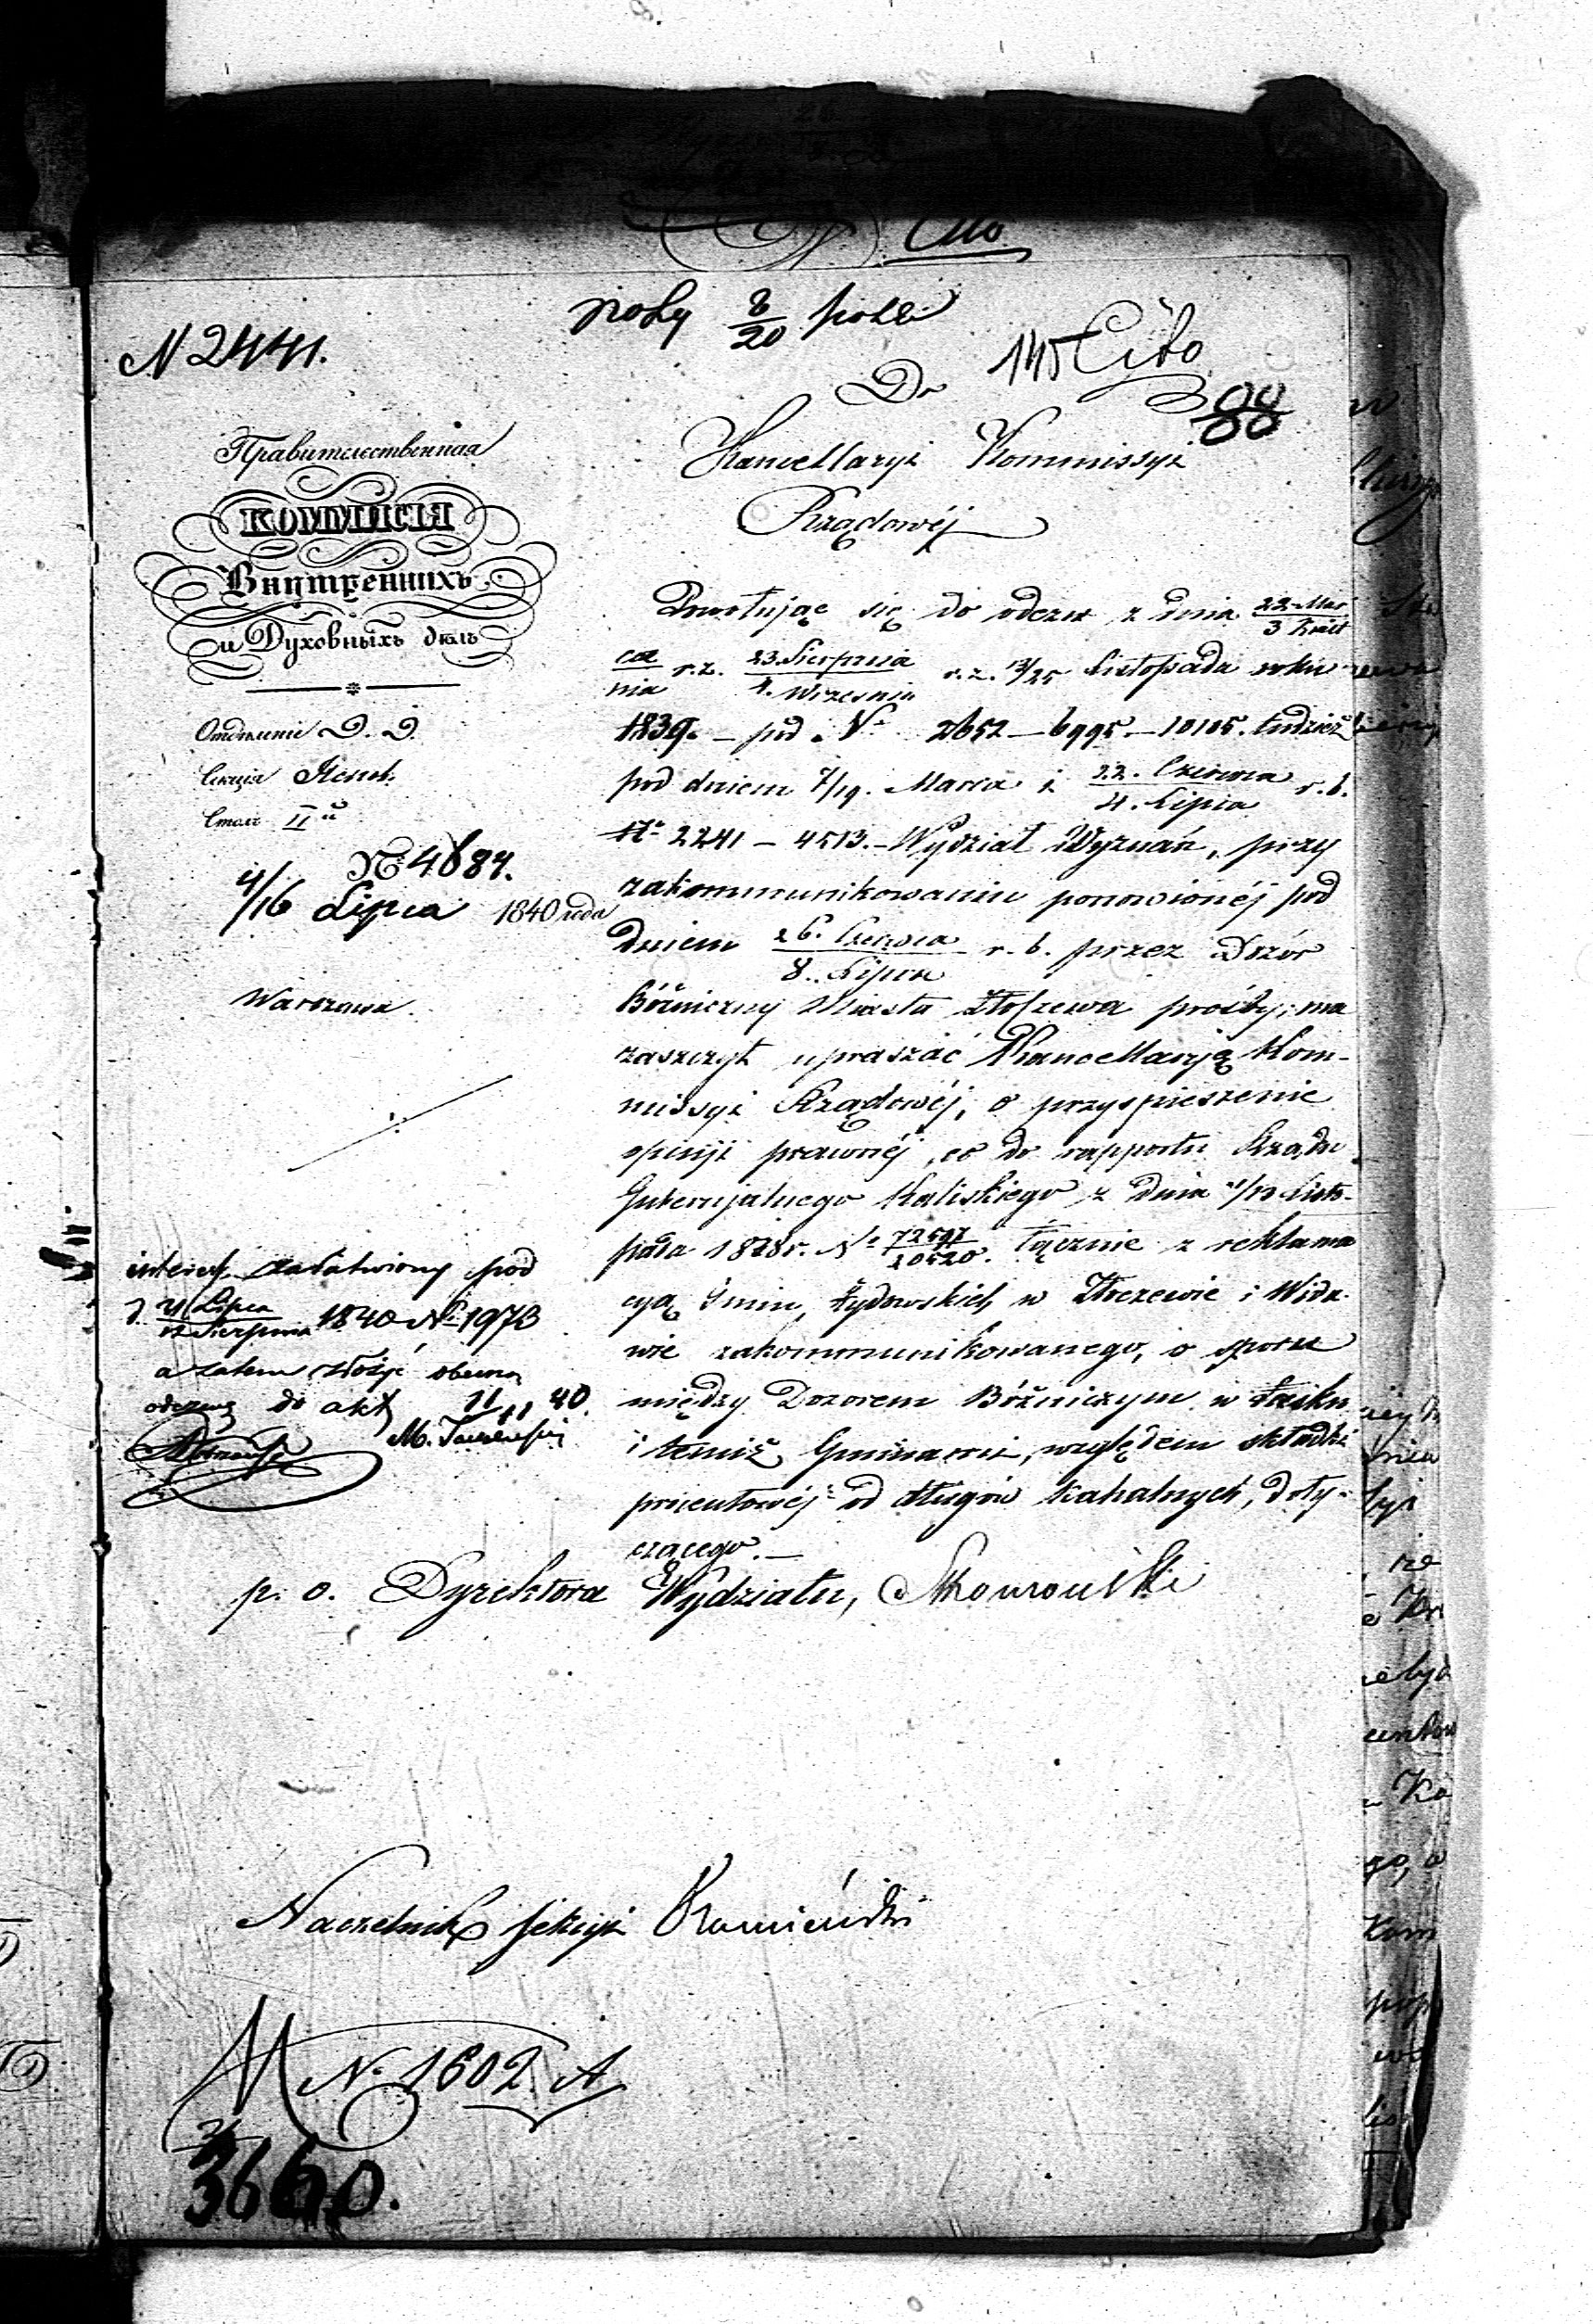 Cito
N 2441.
145 Cito
Do
88
Kancellaryi Kommissyi
Rządowéj
Правительственная
КОММИСІЯ
Внутреннихъ
и Духовныхъ дѣлъ
Отдѣленіе D. D.
Секція
Столъ II
№ 4684.
4/16 Lipca 1840 года
Warszawa.
Powołując się do odezw z dnia 22 Mar
3 Kwiet
ca
nia r. z. 23 Sierpnia
4. Września r. z. 13/25 Listopada roku
1839. – pod No 2652 – 6995. – 10105. tudzież
pod dniem 7/19. Marca i 22. Czerwca
4. Lipca r. b.
No 2241 – 4513. – Wydział Wyznań, przy
zakommunikowaniu ponowionéj pod
dniem 26. Czerwca
8. Lipca r. b. przez Dozór
Bóżniczny Miasta Złoczewa prośby; ma
zaszczyt upraszać Kancellaryją Kom-
missyi Rządowéj, o przyspieszenie
opinji prawnéj, co do rapportu Rządu
Gubernjalnego Kaliskiego z dnia 1/13 Listo-
pada 1838 r. No łącznie z reklama
cyą Gmin Żydowskich w Złoczewie i Wida-
wie zakommunikowanego, o sporu
między Dozorem Bóżniczym w Łasku
i temiż Gminami, względem składki
procentowéj od długów kahalnych, doty-
czącego. –
interes załatwiony pod
d. Lipca
Sierpnia 1840 No 1973
a zatem złożyć obecną
odezwę do akt 11/11 40.
p. o. Dyrektora Wydziału,
Naczelnik sekcyi Kamieński
N. 1602 A
3660.